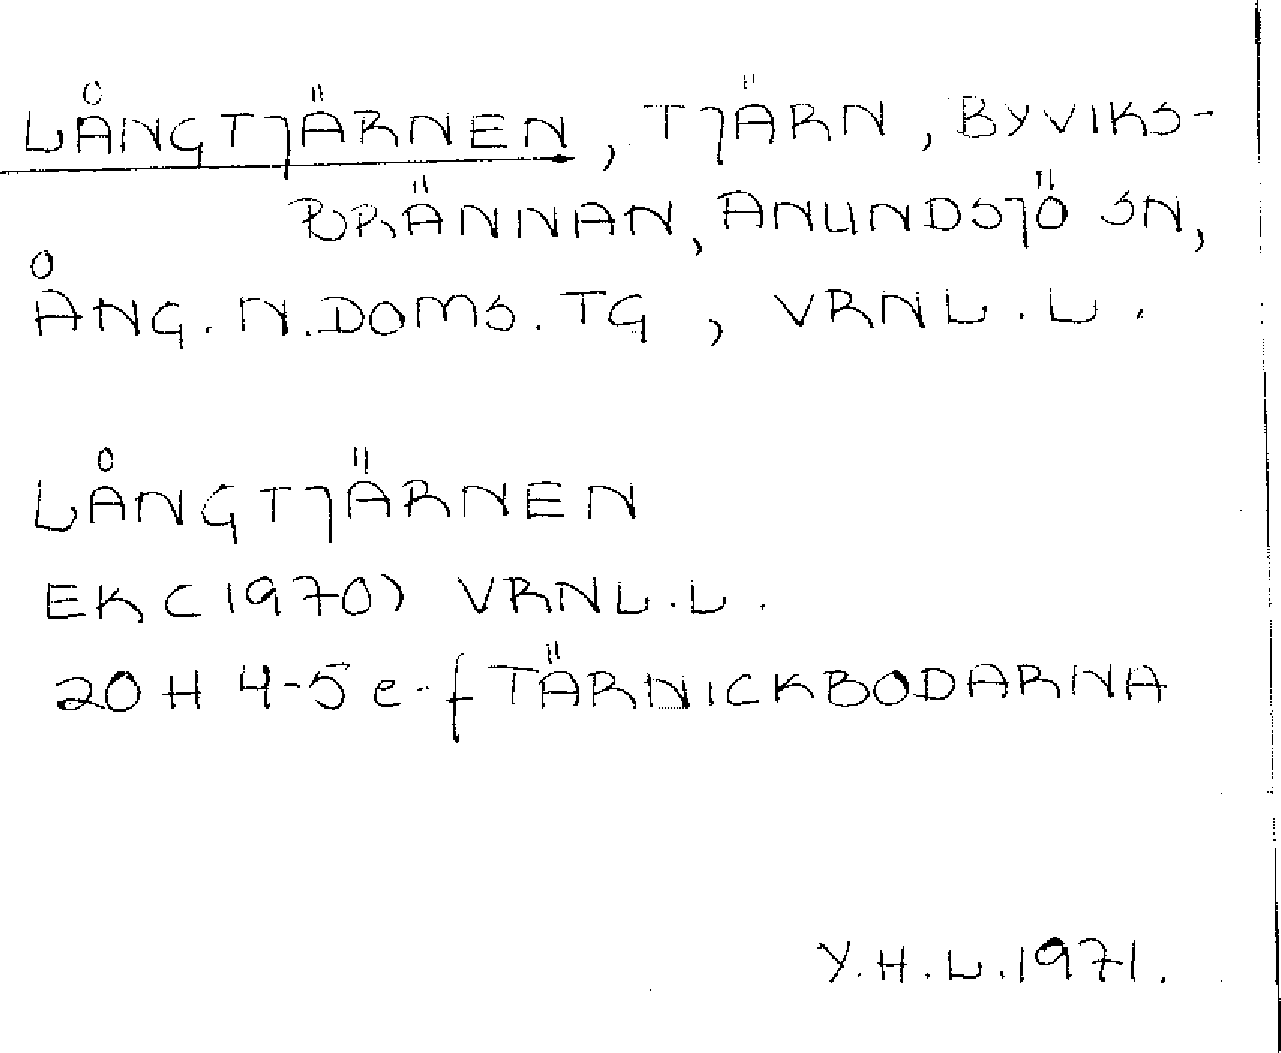 LÅNGTJÄRNEN, TJÄRN, BYVIKS-
BRÄNNAN, ANUNDSJÖ SN,
ÅNG. N. DOMS. TG, VRNL. L.
LÅNGTJÄRNEN
EK (1970) VRNL. L.
20H 4-5 e-f TÄRNICKBODARNA
Y. H. L. 1971.